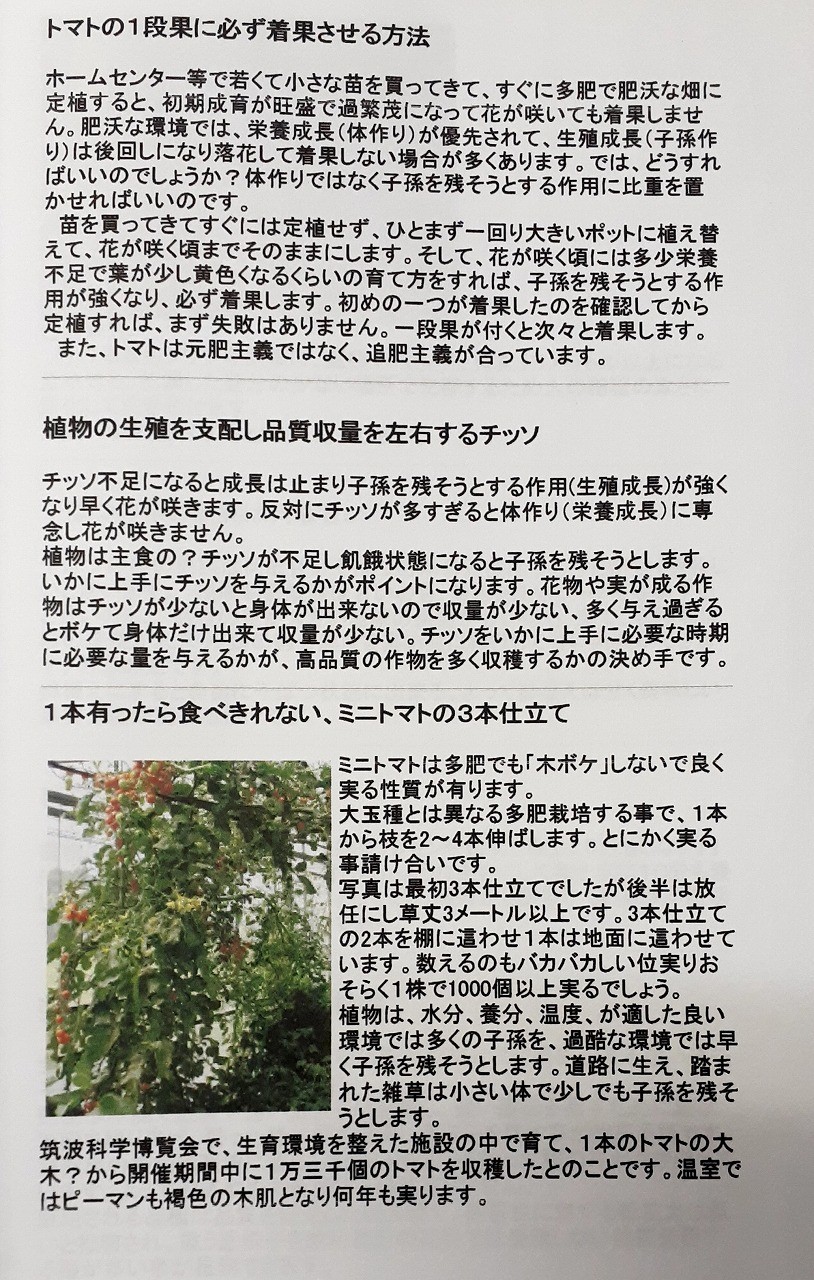 トマトの１段果に必ず着果させる方法
ホームセンター等で若くて小さな苗を買ってきて、すぐに多肥で肥沃な畑に
定植すると、初期成育が旺盛で過繁茂になって花が咲いても着果しませ
ん。肥沃な環境では、栄養成長（体作り）が優先されて、生殖成長（子孫作
り）は後回しになり落花して着果しない場合が多くあります。では、どうすれ
ばいいのでしょうか？体作りではなく子孫を残そうとする作用に比重を置
かせればいいのです。
苗を買ってきてすぐには定植せず、ひとまず一回り大きいポットに植え替
えて、花が咲く頃までそのままにします。そして、花が咲く頃には多少栄養
不足で葉が少し黄色くなるくらいの育て方をすれば、子孫を残そうとする作
用が強くなり、必ず着果します。初めの一つが着果したのを確認してから
定植すれば、まず失敗はありません。一段果が付くと次々と着果します。
また、トマトは元肥主義ではなく、追肥主義が合っています。
植物の生殖を支配し品質収量を左右するチッソ
チッソ不足になると成長は止まり子孫を残そうとする作用（生殖成長）が強く
なり早く花が咲きます。反対にチッソが多すぎると体作り（栄養成長）に専
念し花が咲きません。
植物は主食の？チッソが不足し飢餓状態になると子孫を残そうとします。
いかに上手にチッソを与えるかがポイントになります。花物や実が成る作
物はチッソが少ないと身体が出来ないので収量が少ない、多く与え過ぎる
とボケて身体だけ出来て収量が少ない。チッソをいかに上手に必要な時期
に必要な量を与えるかが、高品質の作物を多く収穫するかの決め手です。
１本有ったら食べきれない、ミニトマトの３本仕立て
ミニトマトは多肥でも「木ボケ」しないで良く
実る性質が有ります。
大玉種とは異なる多肥栽培する事で、１本
から枝を2～4本伸ばします。とにかく実る
事請け合いです。
写真は最初3本仕立てでしたが後半は放
任にし草丈3メートル以上です。3本仕立て
の2本を棚に這わせ１本は地面に這わせて
います。数えるのもバカバカしい位実りお
そらく１株で1000個以上実るでしょう。
植物は、水分、養分、温度、が適した良い
環境では多くの子孫を、過酷な環境では早
く子孫を残そうとします。道路に生え、踏ま
れた雑草は小さい体で少しでも子孫を残そ
うとします。
筑波科学博覧会で、生育環境を整えた施設の中で育て、１本のトマトの大
木？から開催期間中に１万三千個のトマトを収穫したとのことです。温室で
はピーマンも褐色の木肌となり何年も実ります。